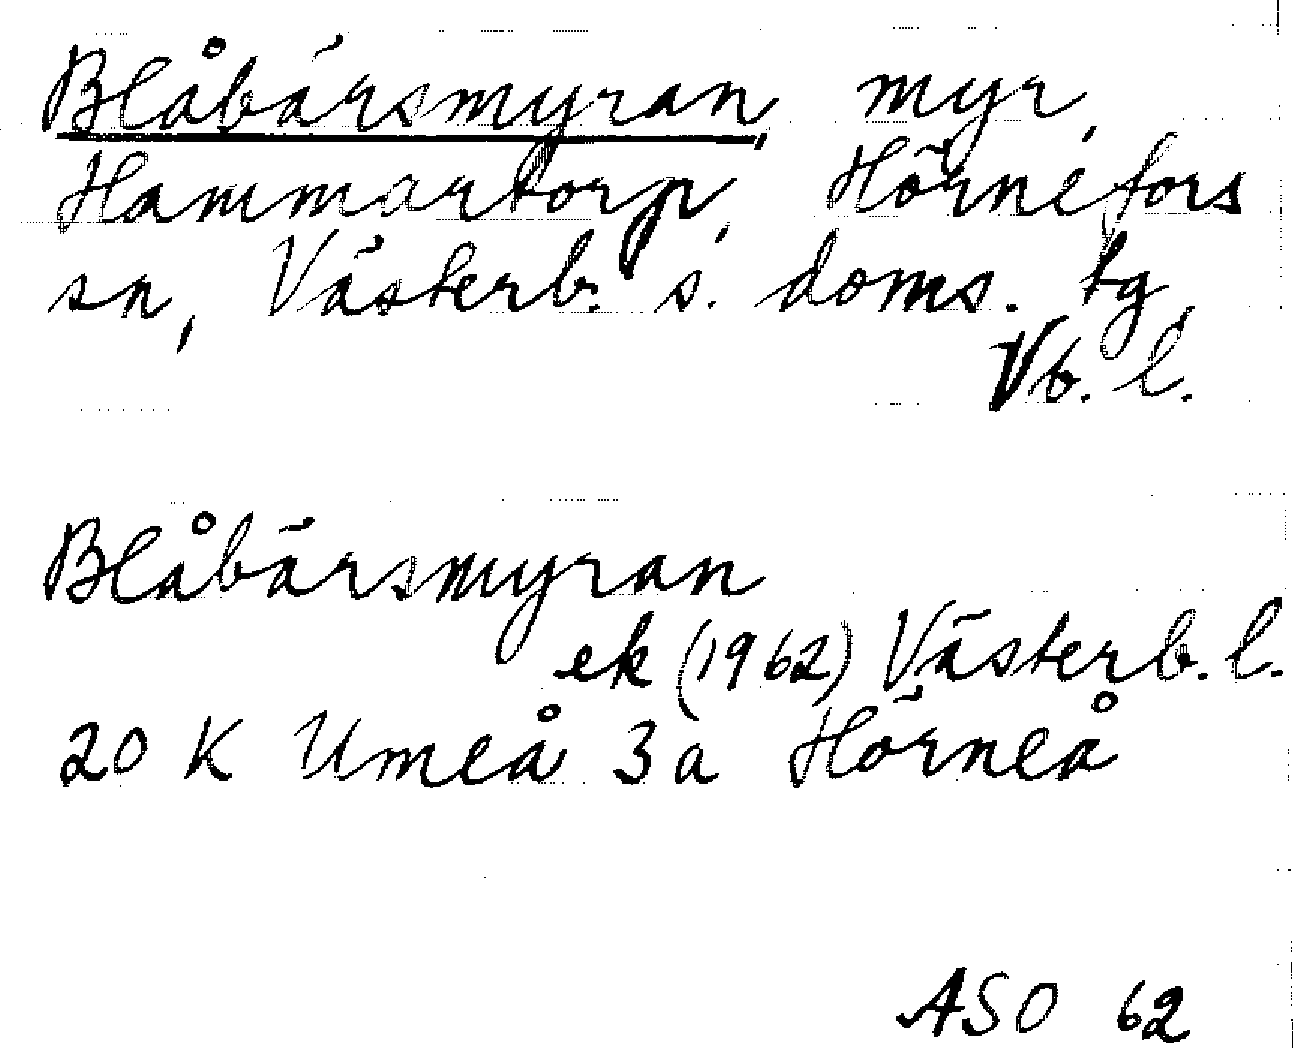 Blåbärsmyran, myr,
Hammartorp, Hörnefors
sn, Västerb. s. doms. tg,
Vb. l.
Blåbärsmyran
ek (1962) Västerb. l.
20 K Umeå 3a Hörneå
ASO 62